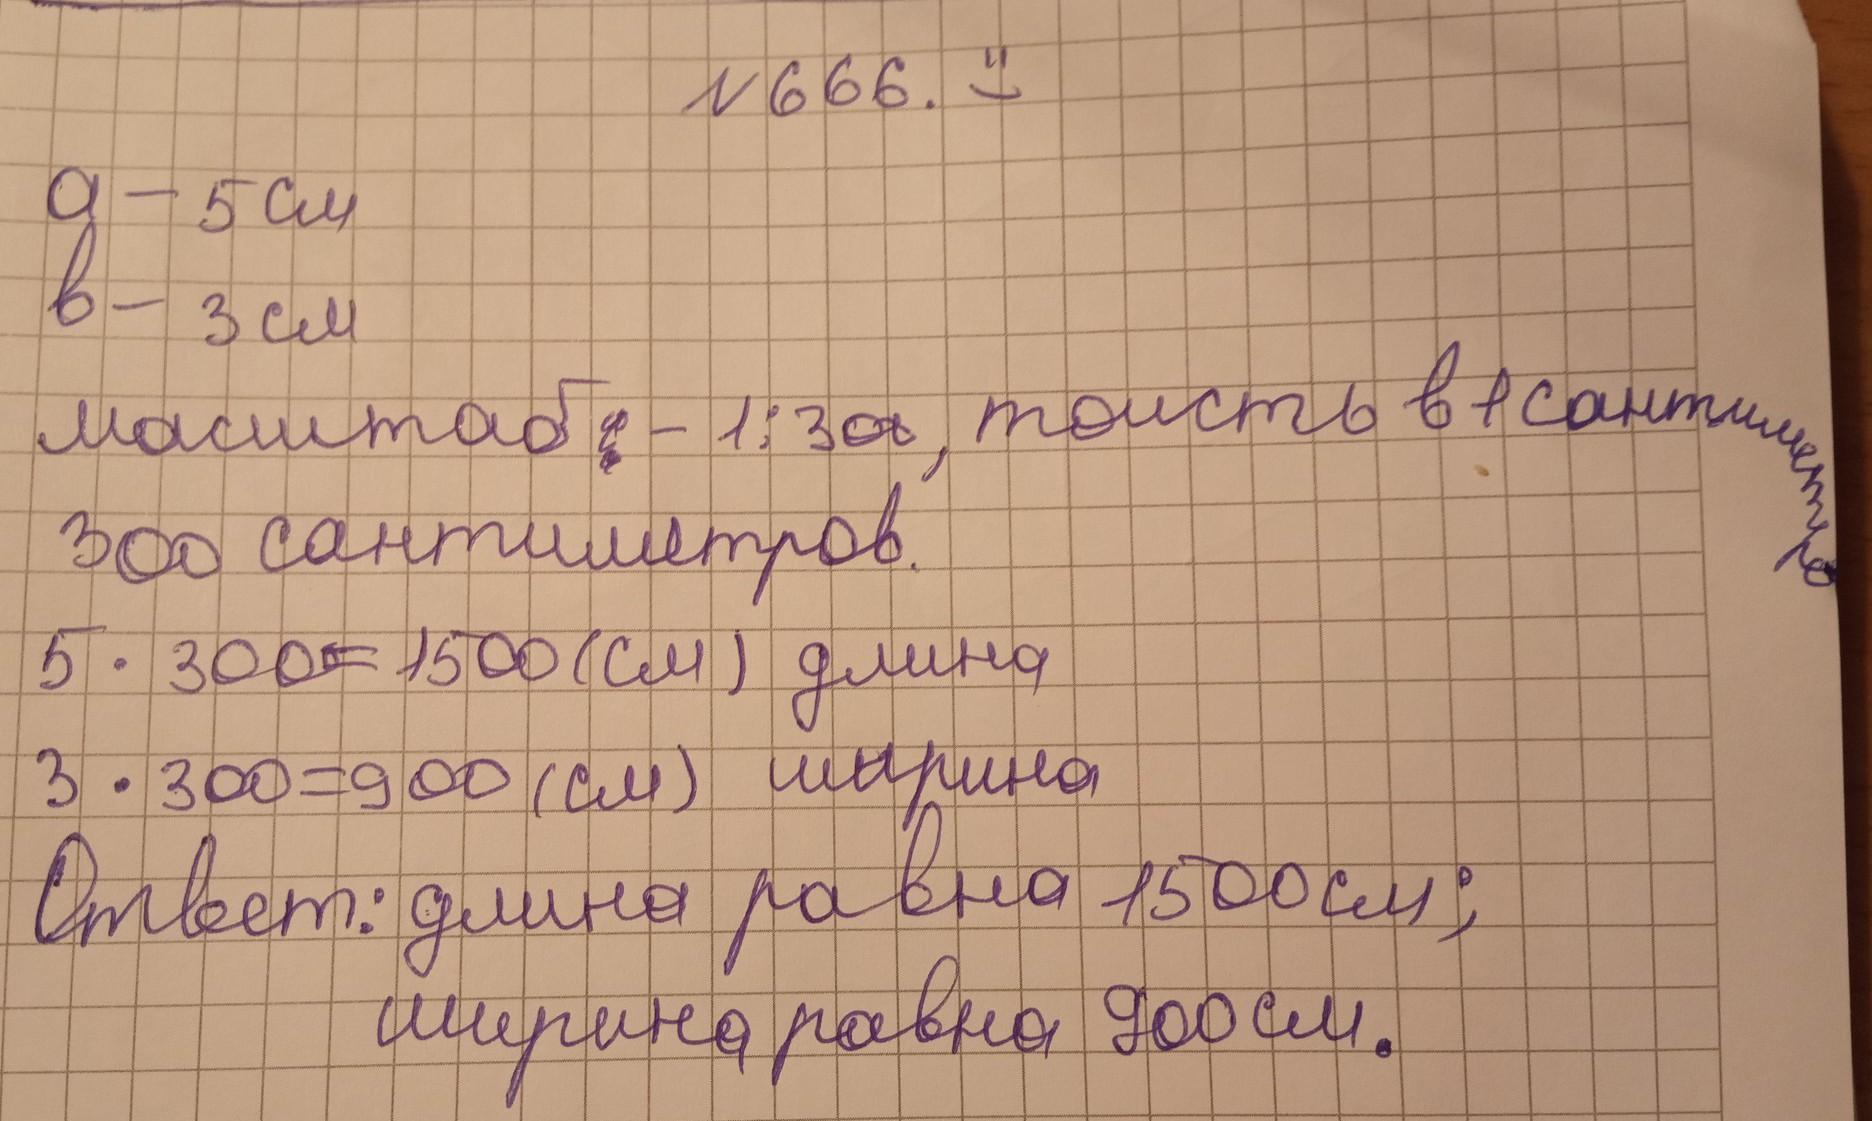 №666. :)
а – 5 см
в – 3 см
масштаб: – 1:300, тоисть в 1 сантиметре
300 сантиметров.
5 · 300 = 1500 (см) длина
3 · 300 = 900 (см) шырина
Ответ: длина равна 1500 см;
ширина равна 900 см.